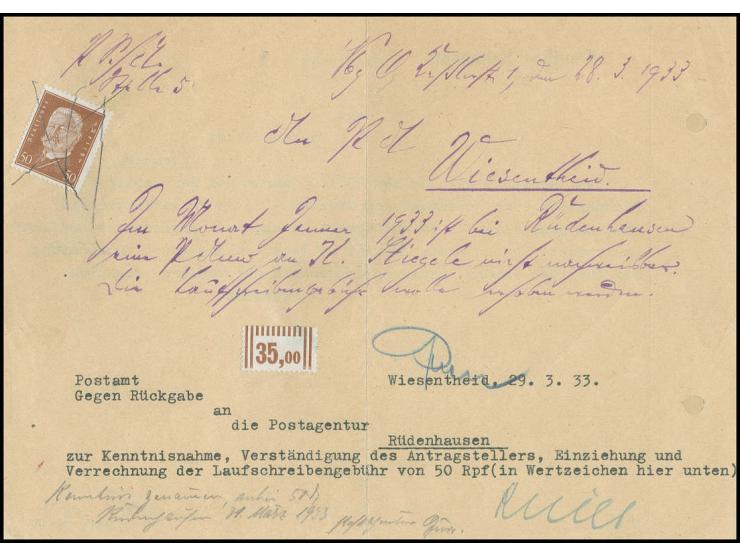 Stelle 5.
1, den 28. 3. 1933
An P A
Wiesentheid.
DEUTSCHES REICH
50 50
Im Monat Januar 1933 ist bei Rüdenhausen
eine an H. Stiegele nicht nachweisbar.
Die Laufschreibengebühr wolle erhoben werden.
35,00
Postamt Wiesentheid, 29. 3. 33.
Gegen Rückgabe
an
die Postagentur
Rüdenhausen
zur Kenntnisnahme, Verständigung des Antragstellers, Einziehung und
Verrechnung der Laufschreibengebühr von 50 Rpf(in Wertzeichen hier unten)
Kenntnis genommen, anbei 50
Rüdenhausen 31. März 1933